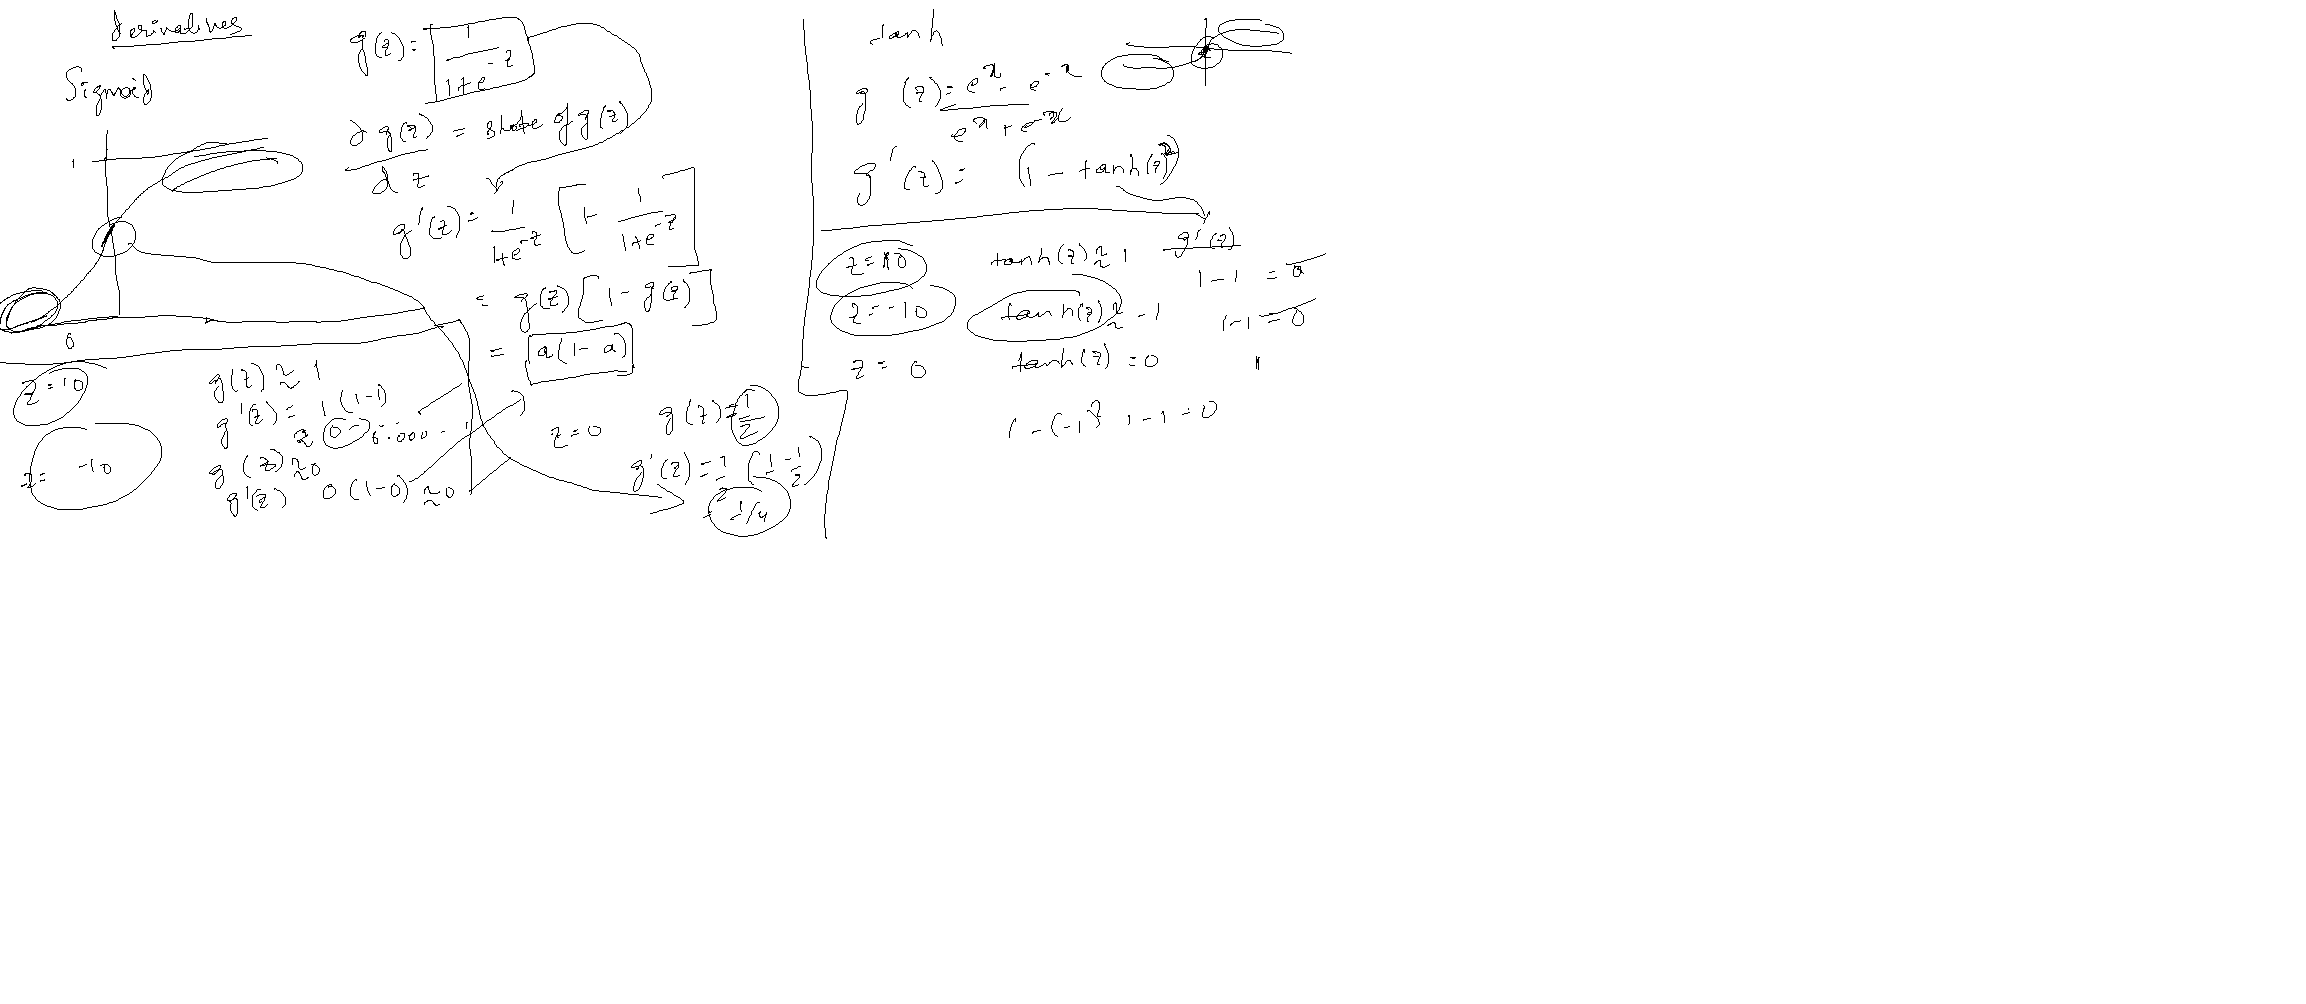 derivatives
Sigmoid
1
0
g(z) = 1 / 1+e^-z
d g(z) / d z = slope of g(z)
g'(z) = 1 / 1+e^-z [1 - 1 / 1+e^-z]
= g(z) [1 - g(z)]
= a(1 - a)
z = 10
g(z) ≈ 1
g'(z) = 1 (1-1)
≈ 0
z = -10
g(z) ≈ 0
g'(z) 0 (1-0) ≈ 0
z = 0
g(z) = 1/2
g'(z) = 1/2 (1 - 1/2)
= 1/4
tanh
g(z) = e^x - e^-x / e^x + e^-x
g'(z) = (1 - tanh(z)^2)
g'(z)
z = 10 tanh(z) ≈ 1 1-1 = 0
z = -10 tanh(z) ≈ -1 1-1 = 0
z = 0 tanh(z) = 0 1
1 - (-1)^2 1-1 = 0